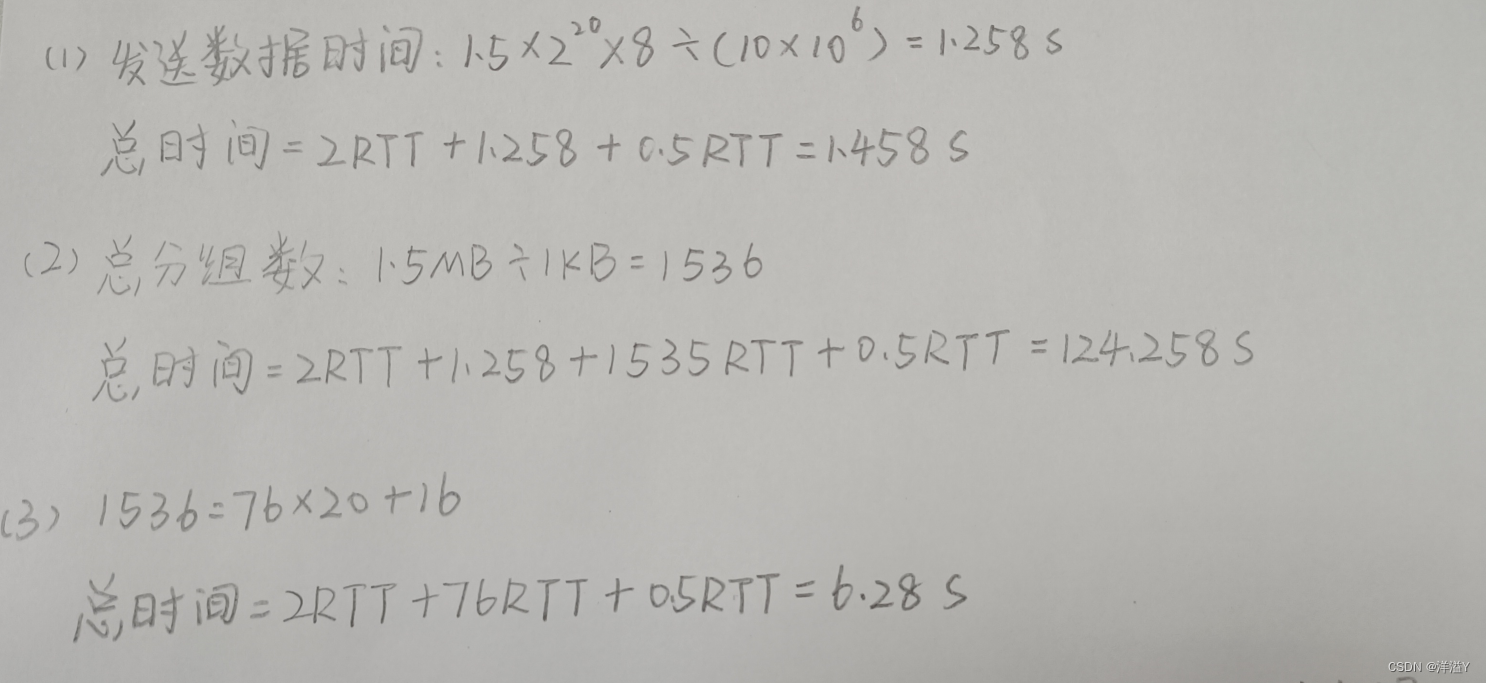 (1) 发送数据时间：1.5×2²⁰×8÷(10×10⁶)=1.258 s
总时间=2RTT+1.258+0.5RTT=1.458 s
(2) 总分组数：1.5MB÷1KB=1536
总时间=2RTT+1.258+1535RTT+0.5RTT=124.258 s
(3) 1536=76×20+16
总时间=2RTT+76RTT+0.5RTT=6.28 s
CSDN @洋溢Y